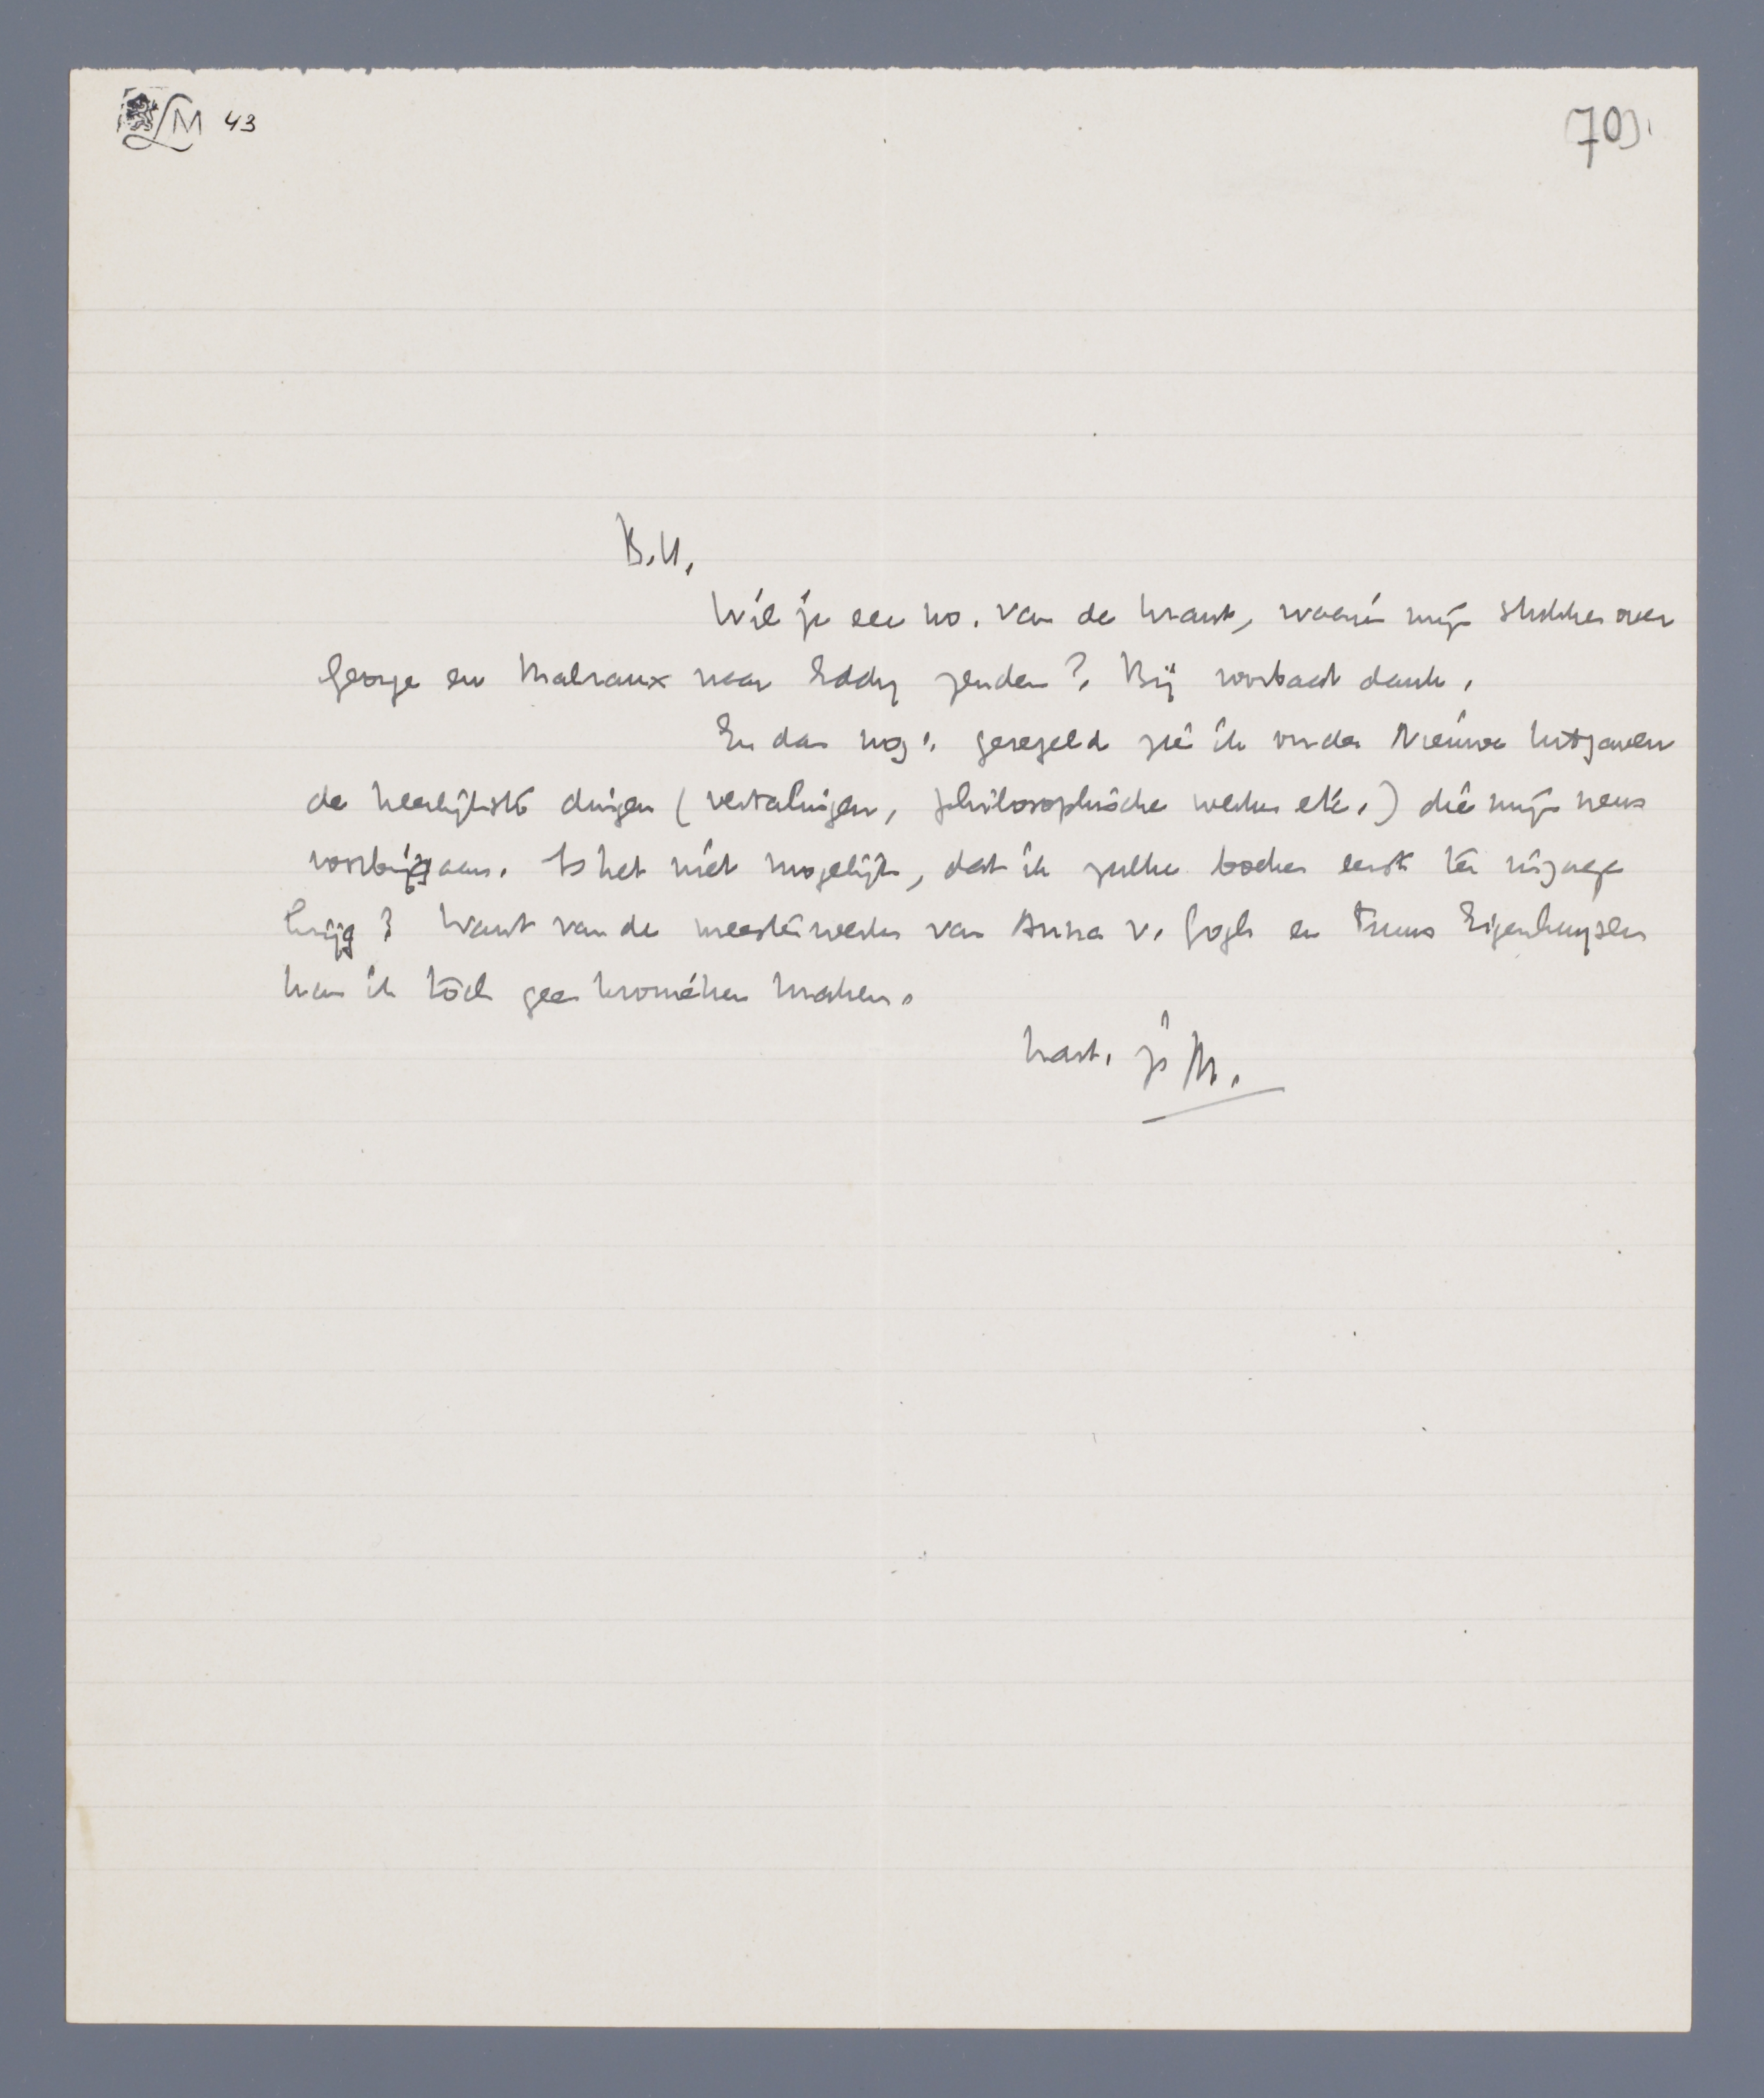 LM 43
70
B.H.
Wil je een no. van de krant, waarin mijn stukken over
George en Malraux naar Eddy zenden? Bij voorbaat dank.
En dan nog: geregeld zie ik onder Nieuwe Uitgaven
de heerlijkste dingen (vertalingen, philosophische werken etc.) die mijn neus
voorbijgaan. Is het niet mogelijk, dat ik zulke boeken eerst ter inzage
krijg? Want van de meesterwerken van Anna v. Gogh en Truus Eigenhuyzen
kan ik tòch geen kronieken maken.
hart. je M.